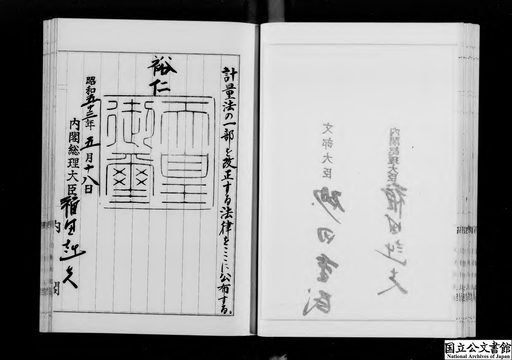 内閣総理大臣 福田赳夫
文部大臣 砂田重民
計量法の一部を改正する法律をここに公布する。
裕仁
天皇御璽
昭和五十三年五月十八日
内閣総理大臣 福田赳夫
内閣
国立公文書館
National Archives of Japan